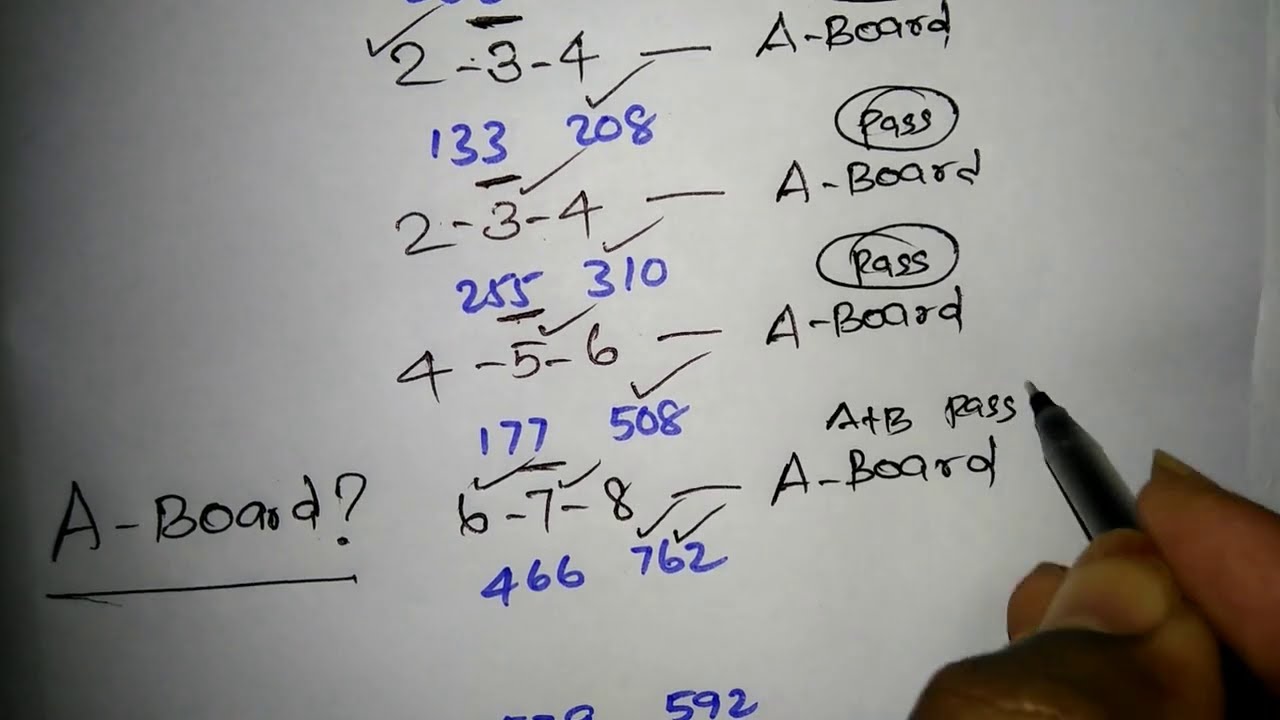 2-3-4 — A-Board
133 208 Pass
2-3-4 — A-Board
255 310 Pass
4-5-6 — A-Board
177 508 A+B Pass
A-Board? 6-7-8 — A-Board
466 762
592